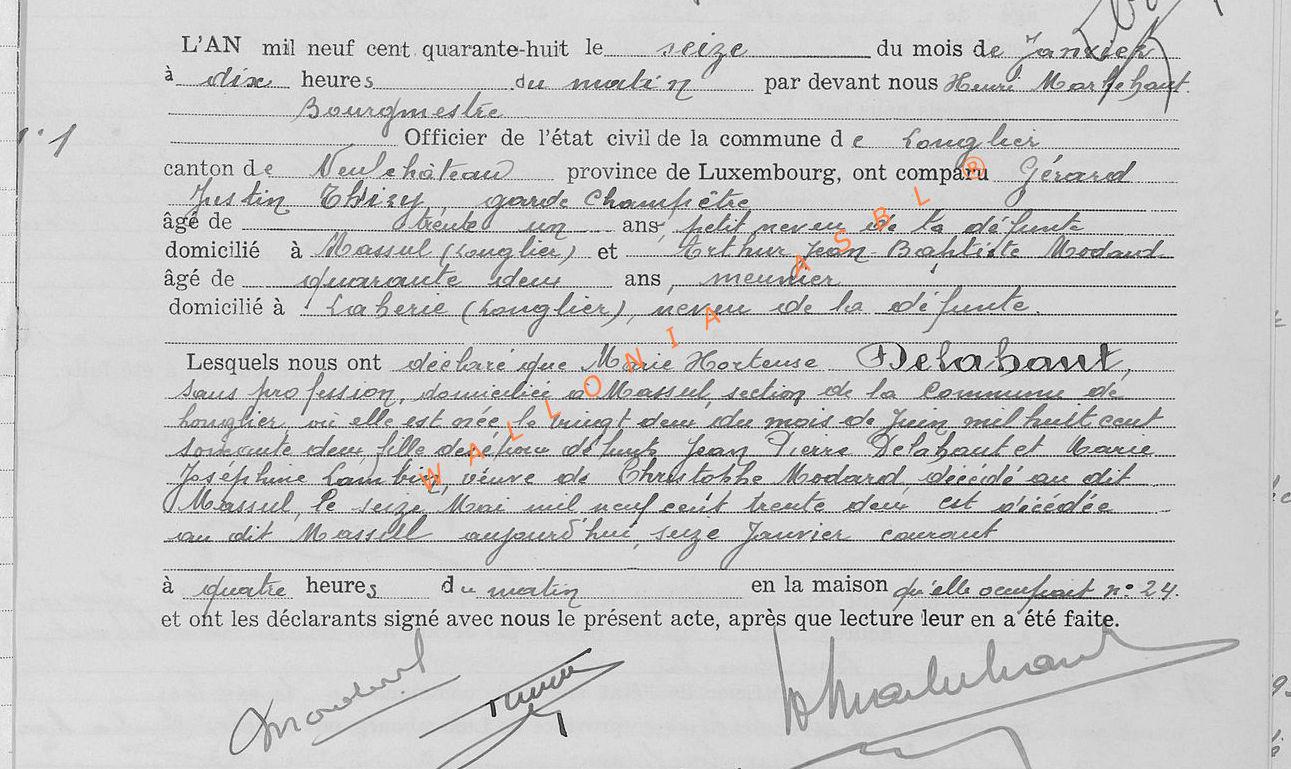 L'AN mil neuf cent quarante-huit le seize du mois de Janvier
à dix heures du matin par devant nous Henri
Bourgmestre
n° 1
Officier de l'état civil de la commune de Longlier
canton de Neufchâteau province de Luxembourg, ont comparu Gérard
Justin Thiry, garde Champêtre
âgé de trente un ans, petit neveu de la défunte
domicilié à Massul (Longlier) et Arthur Jean-Baptiste Modard
âgé de quarante deux ans, meunier
domicilié à Laherie (Longlier), neveu de la défunte.
Lesquels nous ont déclaré que Marie Hortense Delahaut,
sans profession, domiciliée à Massul, section de la Commune de
Longlier, où elle est née, le vingt deux du mois de Juin mil huit cent
soixante deux, fille des époux défunts Jean Pierre Delahaut et Marie
Joséphine Lambin, veuve de Christophe Modard, décédé au dit
Massul, le seize Mai mil neuf cent trente deux est décédée
au dit Massul aujourd'hui, seize Janvier courant
à quatre heures du matin en la maison qu'elle occupait n° 24.
et ont les déclarants signé avec nous le présent acte, après que lecture leur en a été faite.
WALLONIA ASBL ®